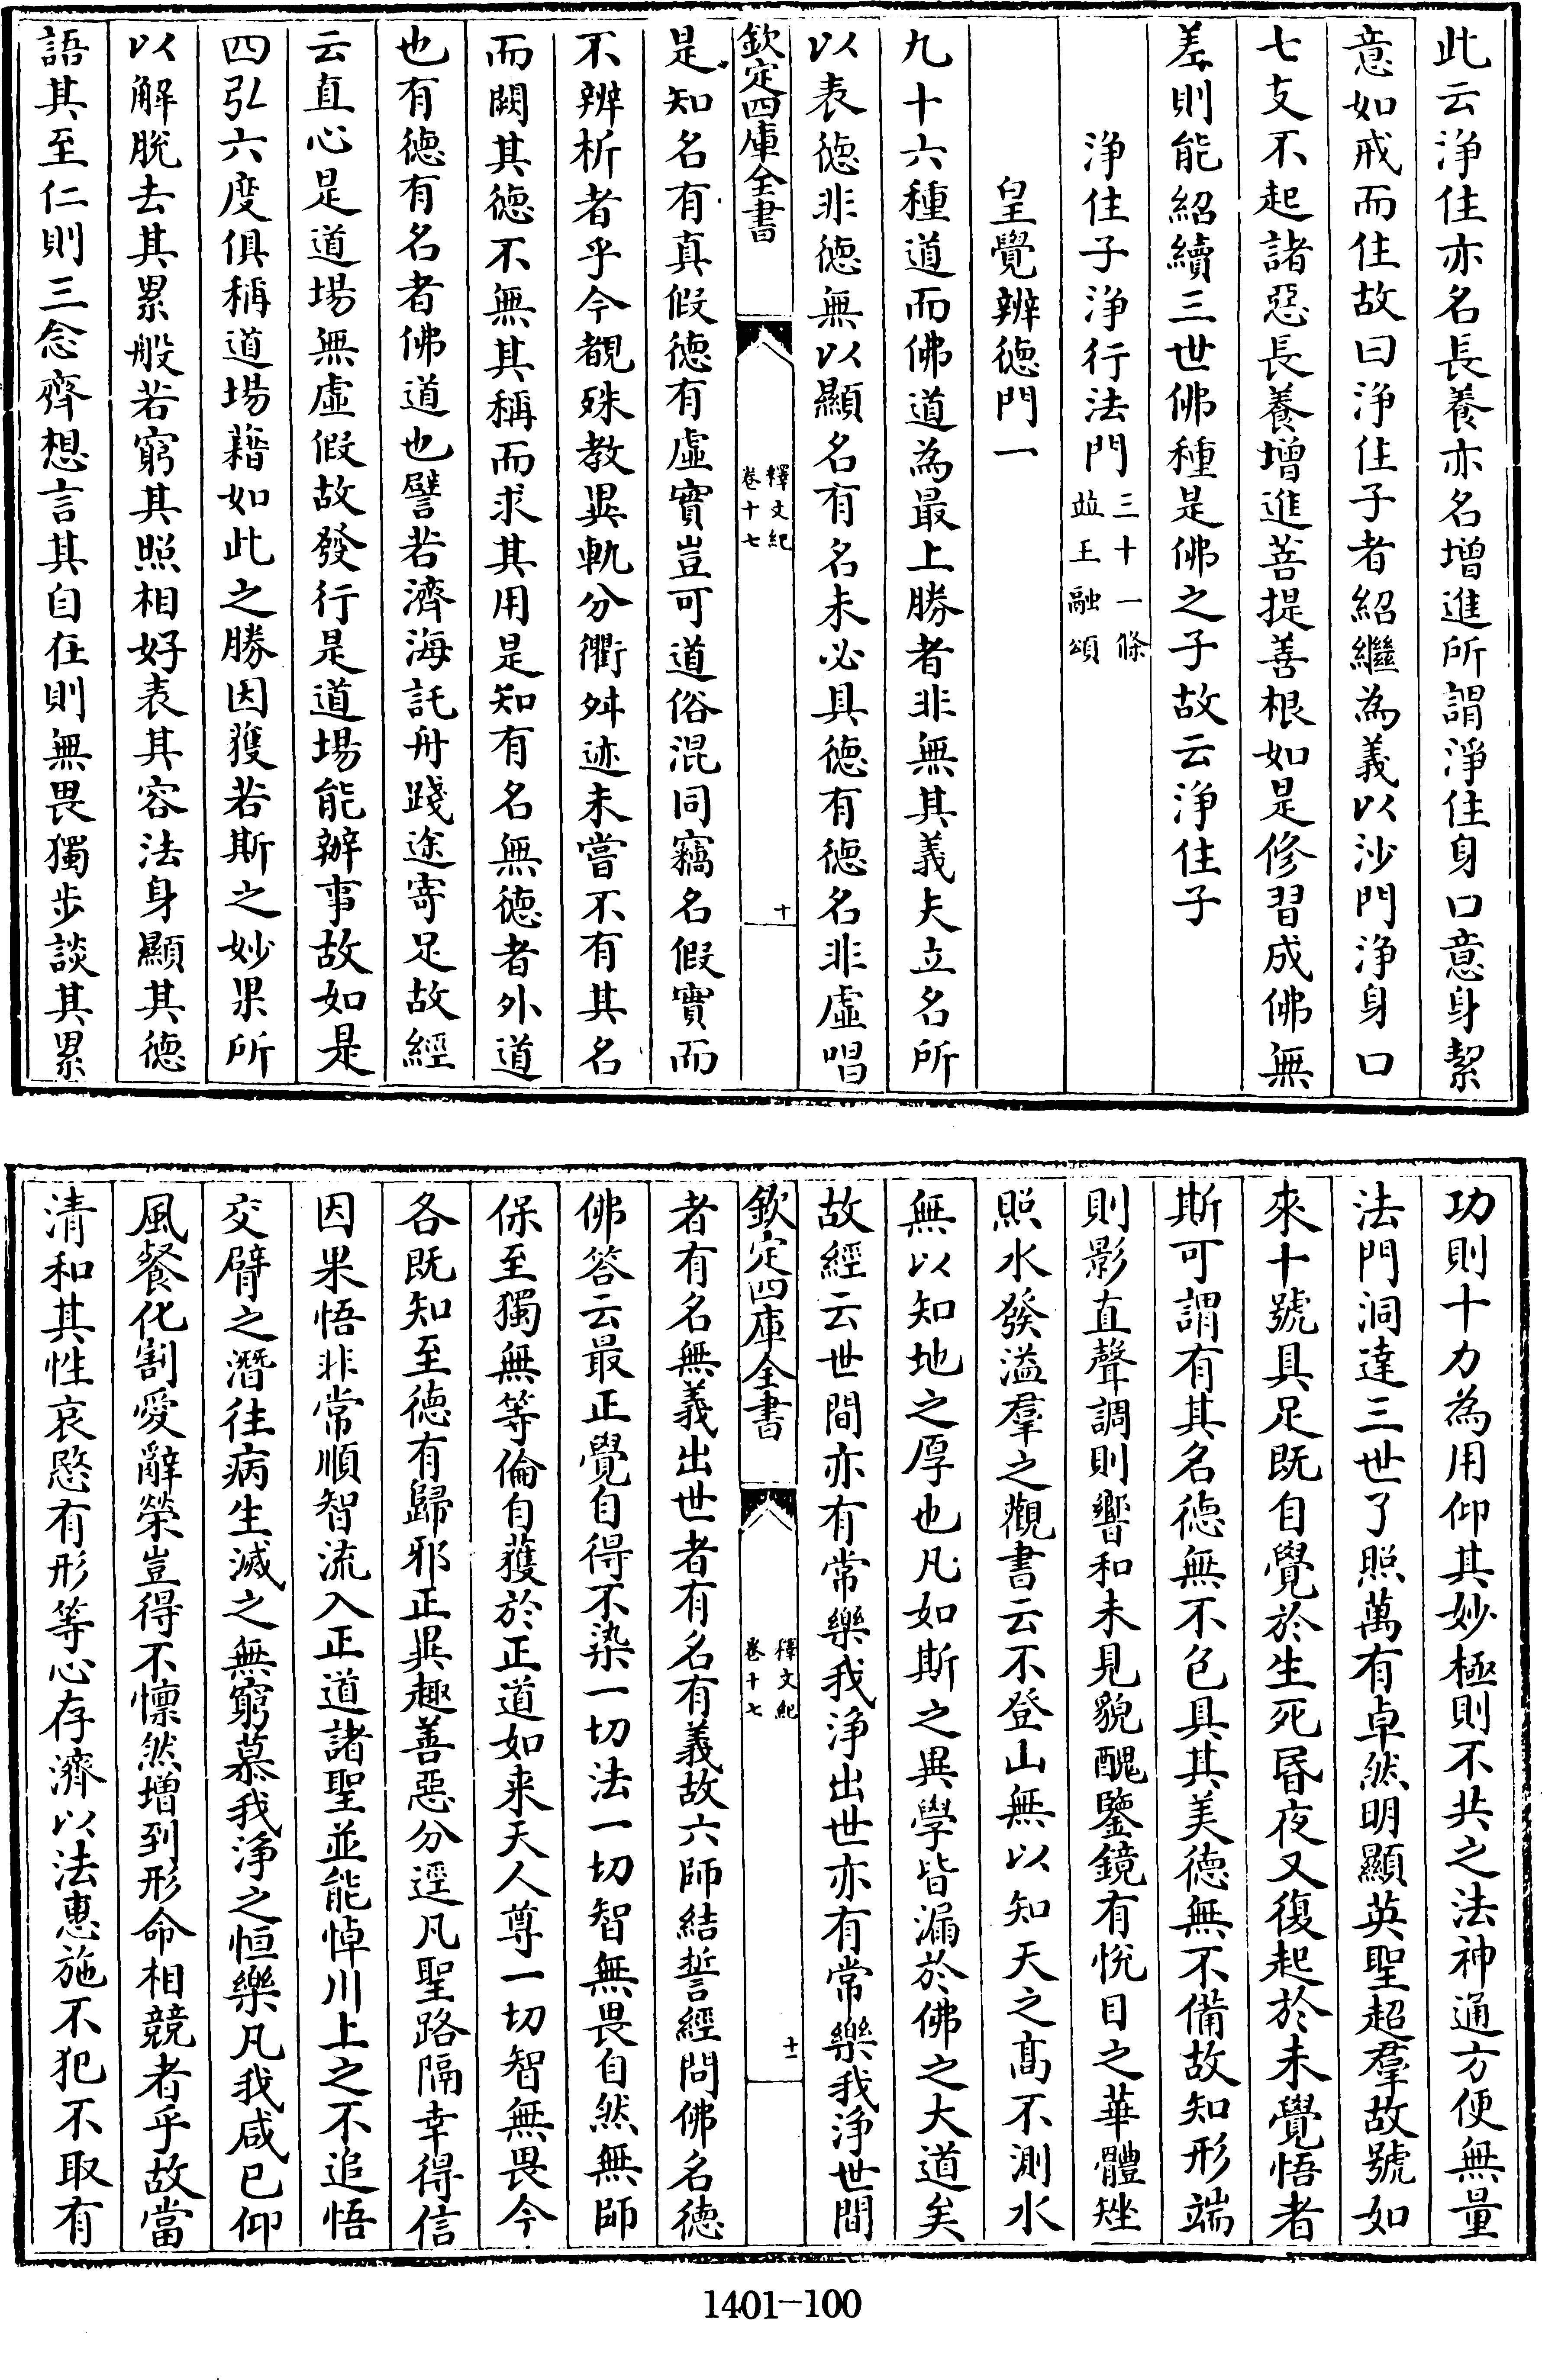 此云浄住亦名長養亦名增進所謂淨住身口意身絜
意如戒而住故曰浄住子者紹繼為義以沙門浄身口
七支不起諸惡長養增進菩提善根如是修習成佛無
差則能紹續三世佛種是佛之子故云浄住子
浄住子浄行法門三十一條
並王融頌
皇覺辨徳門一
九十六種道而佛道為最上勝者非無其義夫立名所
以表徳非徳無以顯名有名未必具徳有徳名非虛唱
欽定四庫全書
釋文紀
卷十七
十
是知名有真假徳有虛實豈可道俗混同竊名假實而
不辨析者乎今覩殊教異軌分衢舛迹未嘗不有其名
而闕其徳不無其稱而求其用是知有名無徳者外道
也有徳有名者佛道也譬若濟海託舟踐途寄足故經
云直心是道場無虛假故發行是道場能辦事故如是
四弘六度俱稱道場藉如此之勝因獲若斯之妙果所
以解脫去其累般若窮其照相好表其容法身顯其徳
語其至仁則三念齊想言其自在則無畏獨步談其累
功則十力為用仰其妙極則不共之法神通方便無量
法門洞達三世了照萬有卓然明顯英聖超羣故號如
來十號具足既自覺於生死昬夜又復起於未覺悟者
斯可謂有其名徳無不包具其美徳無不備故知形端
則影直聲調則響和未見貌醜鑒鏡有悅目之華體矬
照水發溢羣之觀書云不登山無以知天之髙不測水
無以知地之厚也凡如斯之異學皆漏於佛之大道矣
故經云世間亦有常樂我浄出世亦有常樂我浄世間
欽定四庫全書
釋文紀
卷十七
十一
者有名無義出世者有名有義故六師結誓經問佛名徳
佛答云最正覺自得不染一切法一切智無畏自然無師
保至獨無等倫自獲於正道如来天人尊一切智無畏今
各既知至徳有歸邪正異趣善惡分逕凡聖路隔幸得信
因果悟非常順智流入正道諸聖並能悼川上之不追悟
交臂之潛往病生滅之無窮慕我浄之恒樂凡我咸已仰
風餐化割愛辭榮豈得不懍然增到形命相競者乎故當
清和其性哀愍有形等心存濟以法惠施不犯不取有
1401-100